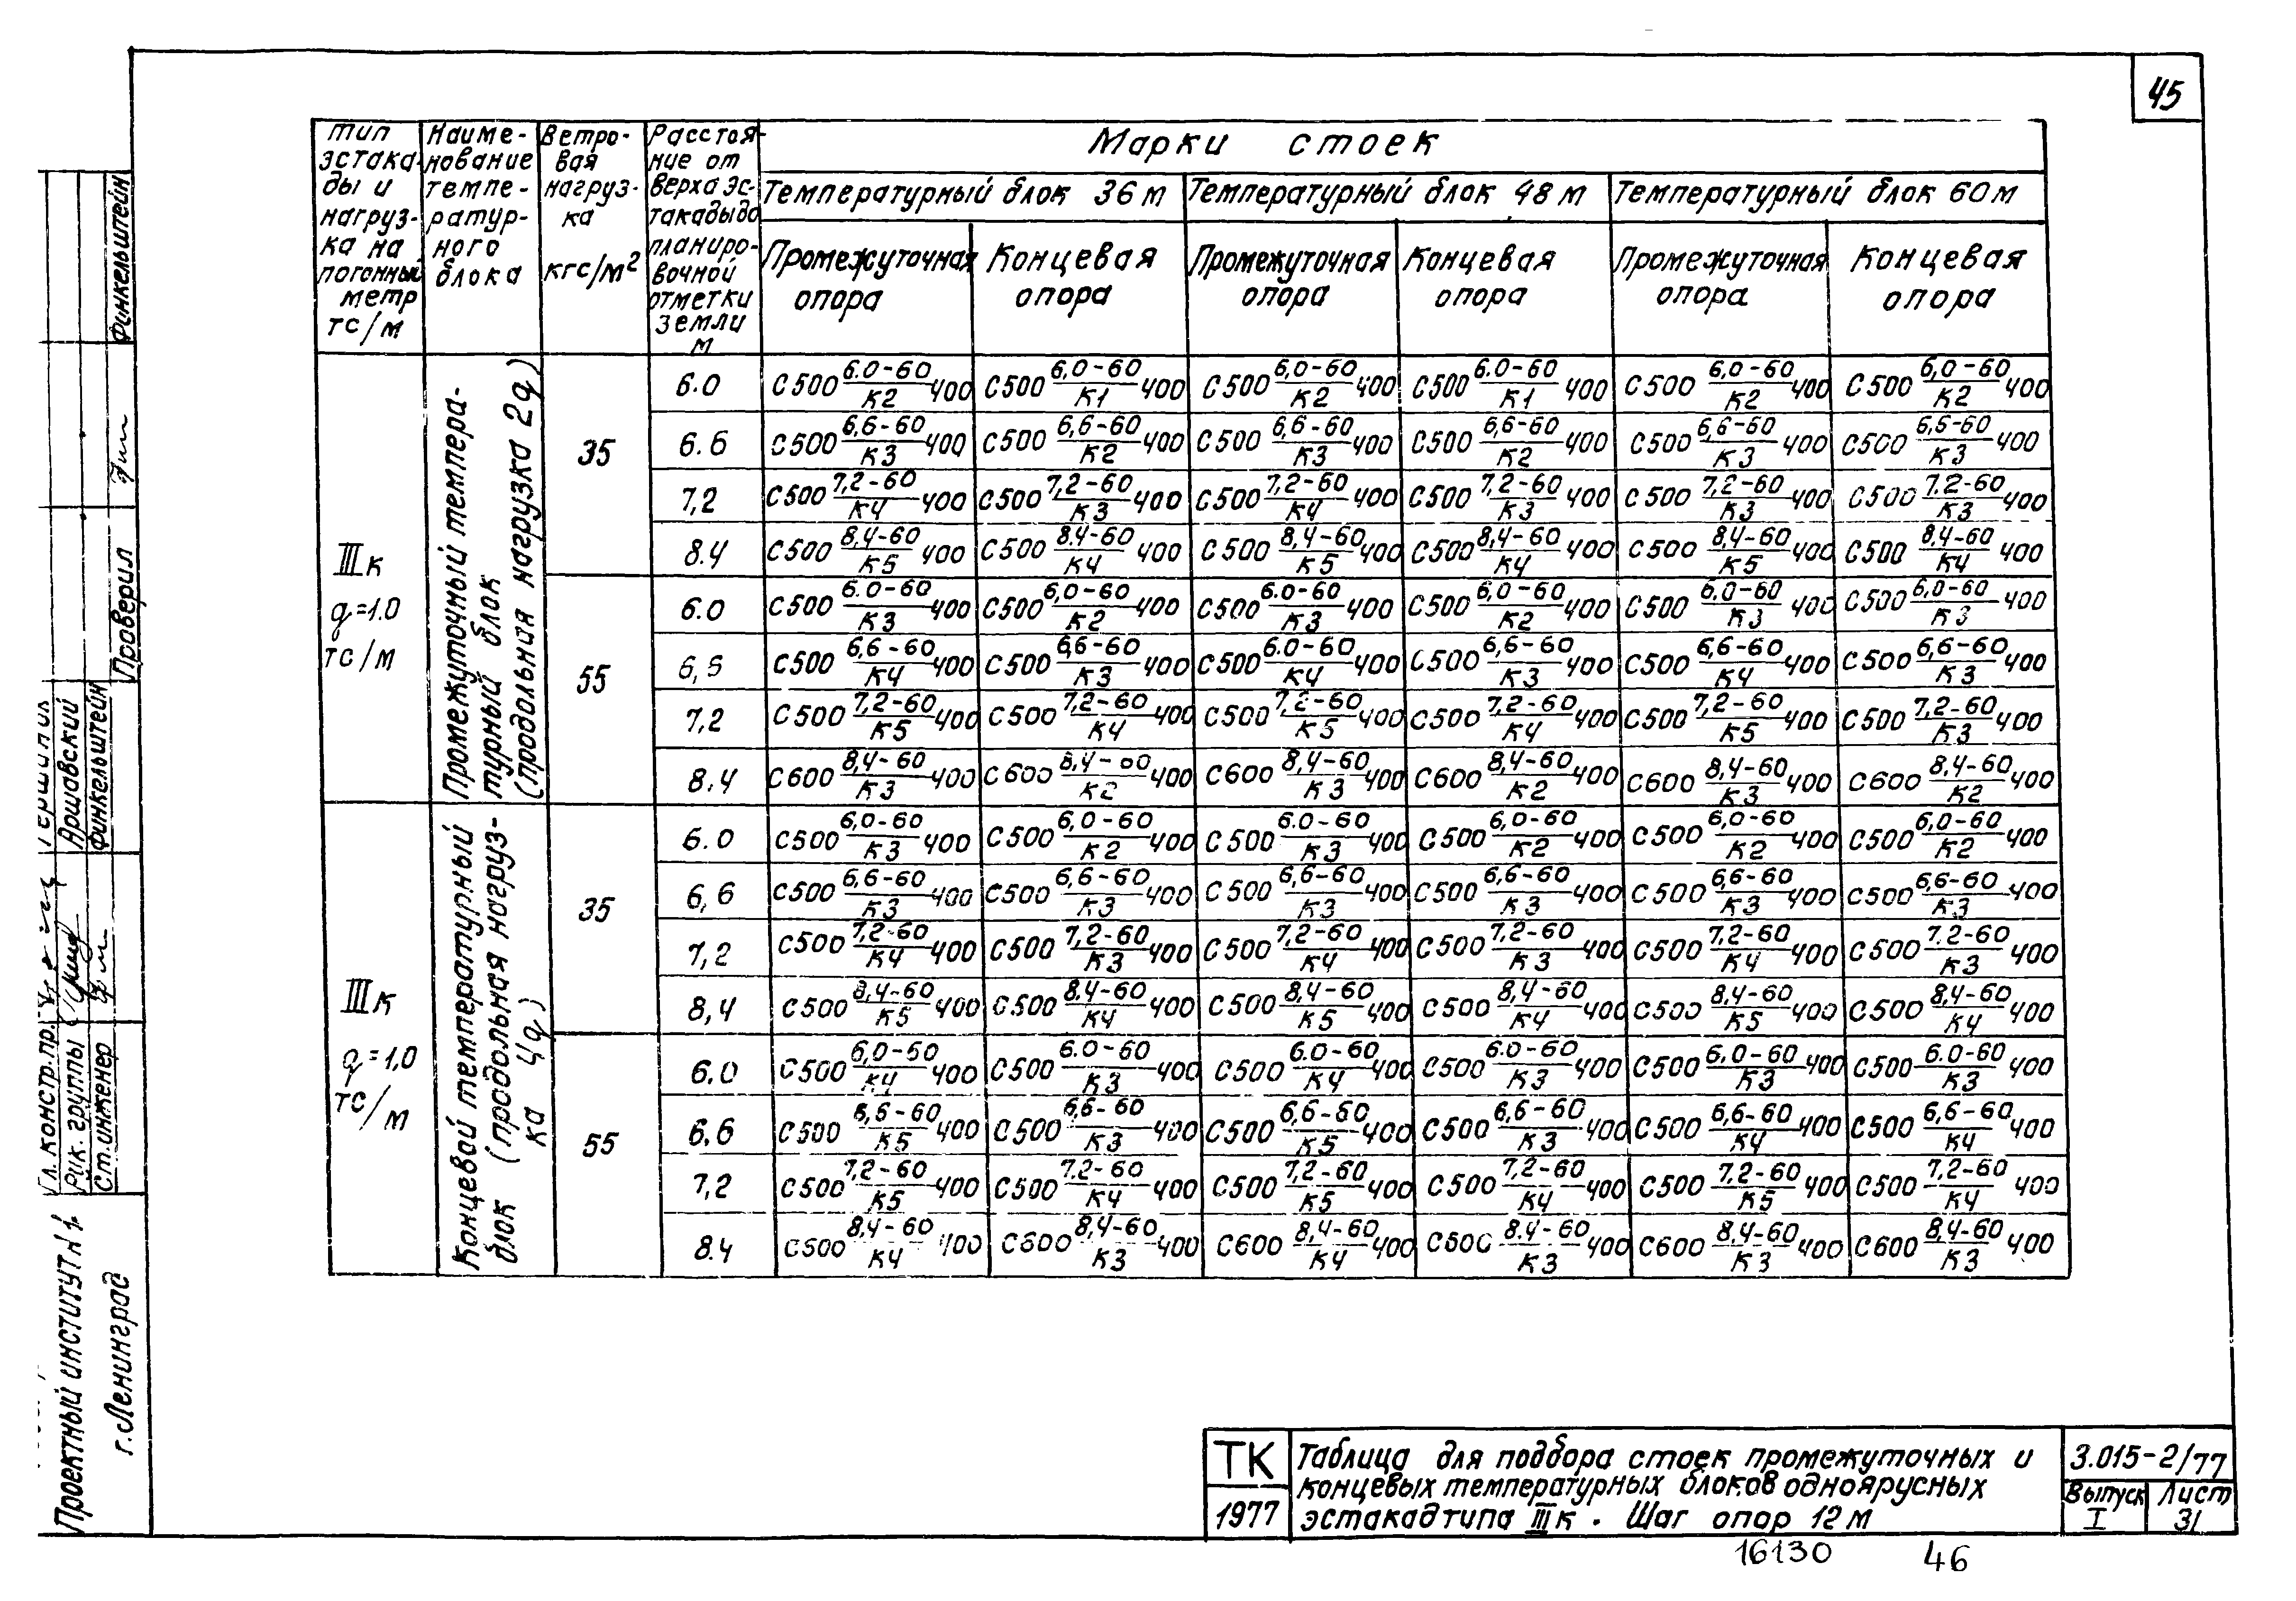 45
Тип эстака-ды и нагруз-ка на погонный метр тс/м
Наиме-нование темпе-ратур-ного блока
Ветро-вая нагруз-ка кгс/м²
Расстоя-ние от верха эс-такады до планиро-вочной отметки земли м
Марки стоек
Температурный блок 36 м
Температурный блок 48 м
Температурный блок 60 м
Промежуточная опора
Концевая опора
Промежуточная опора
Концевая опора
Промежуточная опора
Концевая опора
IIIк q=1.0 тс/м
Промежуточный темпера-турный блок (продольная нагрузка 2q)
35
6.0 С500 6.0-60/К2 400 С500 6,0-60/К1 400 С500 6,0-60/К2 400 С500 6.0-60/К1 400 С500 6,0-60/К2 400 С500 6,0-60/К2 400
6.6 С500 6,6-60/К3 400 С500 6,6-60/К2 400 С500 6,6-60/К3 400 С500 6,6-60/К2 400 С500 6,6-60/К3 400 С500 6,6-60/К3 400
7,2 С500 7,2-60/К4 400 С500 7,2-60/К3 400 С500 7,2-60/К4 400 С500 7,2-60/К3 400 С500 7,2-60/К3 400 С500 7.2-60/К3 400
8.4 С500 8,4-60/К5 400 С500 8.4-60/К4 400 С500 8,4-60/К5 400 С500 8,4-60/К4 400 С500 8,4-60/К5 400 С500 8,4-60/К4 400
55
6.0 С500 6.0-60/К3 400 С500 6,0-60/К2 400 С500 6.0-60/К3 400 С500 6,0-60/К2 400 С500 6.0-60/К3 400 С500 6,0-60/К3 400
6,6 С500 6,6-60/К4 400 С500 6,6-60/К3 400 С500 6.0-60/К4 400 С500 6,6-60/К3 400 С500 6,6-60/К4 400 С500 6,6-60/К3 400
7,2 С500 7,2-60/К5 400 С500 7,2-60/К4 400 С500 7,2-60/К5 400 С500 7,2-60/К4 400 С500 7,2-60/К5 400 С500 7,2-60/К3 400
8.4 С600 8,4-60/К3 400 С600 8,4-60/К2 400 С600 8,4-60/К3 400 С600 8,4-60/К2 400 С600 8,4-60/К3 400 С600 8,4-60/К2 400
IIIк q=1,0 тс/м
Концевой температурный блок (продольная нагруз-ка 4q)
35
6.0 С500 6,0-60/К3 400 С500 6,0-60/К2 400 С500 6.0-60/К3 400 С500 6,0-60/К2 400 С500 6,0-60/К2 400 С500 6,0-60/К2 400
6,6 С500 6,6-60/К3 400 С500 6,6-60/К3 400 С500 6,6-60/К3 400 С500 6,6-60/К3 400 С500 6,6-60/К3 400 С500 6,6-60/К3 400
7,2 С500 7,2-60/К4 400 С500 7,2-60/К3 400 С500 7,2-60/К4 400 С500 7,2-60/К3 400 С500 7,2-60/К4 400 С500 7.2-60/К3 400
8,4 С500 8,4-60/К5 400 С500 8.4-60/К4 400 С500 8,4-60/К5 400 С500 8,4-60/К4 400 С500 8,4-60/К5 400 С500 8,4-60/К4 400
55
6.0 С500 6,0-60/К4 400 С500 6.0-60/К3 400 С500 6.0-60/К4 400 С500 6.0-60/К3 400 С500 6.0-60/К3 400 С500 6.0-60/К3 400
6,6 С500 6,6-60/К5 400 С500 6,6-60/К3 400 С500 6,6-60/К5 400 С500 6,6-60/К3 400 С500 6,6-60/К4 400 С500 6,6-60/К4 400
7,2 С500 7,2-60/К5 400 С500 7.2-60/К4 400 С500 7,2-60/К5 400 С500 7,2-60/К4 400 С500 7,2-60/К5 400 С500 7,2-60/К4 400
8.4 С600 8,4-60/К4 400 С600 8,4-60/К3 400 С600 8,4-60/К4 400 С600 8.4-60/К3 400 С600 8,4-60/К3 400 С600 8,4-60/К3 400
ТК
1977
Таблица для подбора стоек промежуточных и
концевых температурных блоков одноярусных
эстакад типа IIIк. Шаг опор 12 м
3.015-2/77
Выпуск I
Лист 31
16130
46
Проектный институт №1
г. Ленинград
Гл. констр. пр.
Рук. группы
Аршавский
Ст. инженер
Финкельштейн
Проверил
Финкельштейн